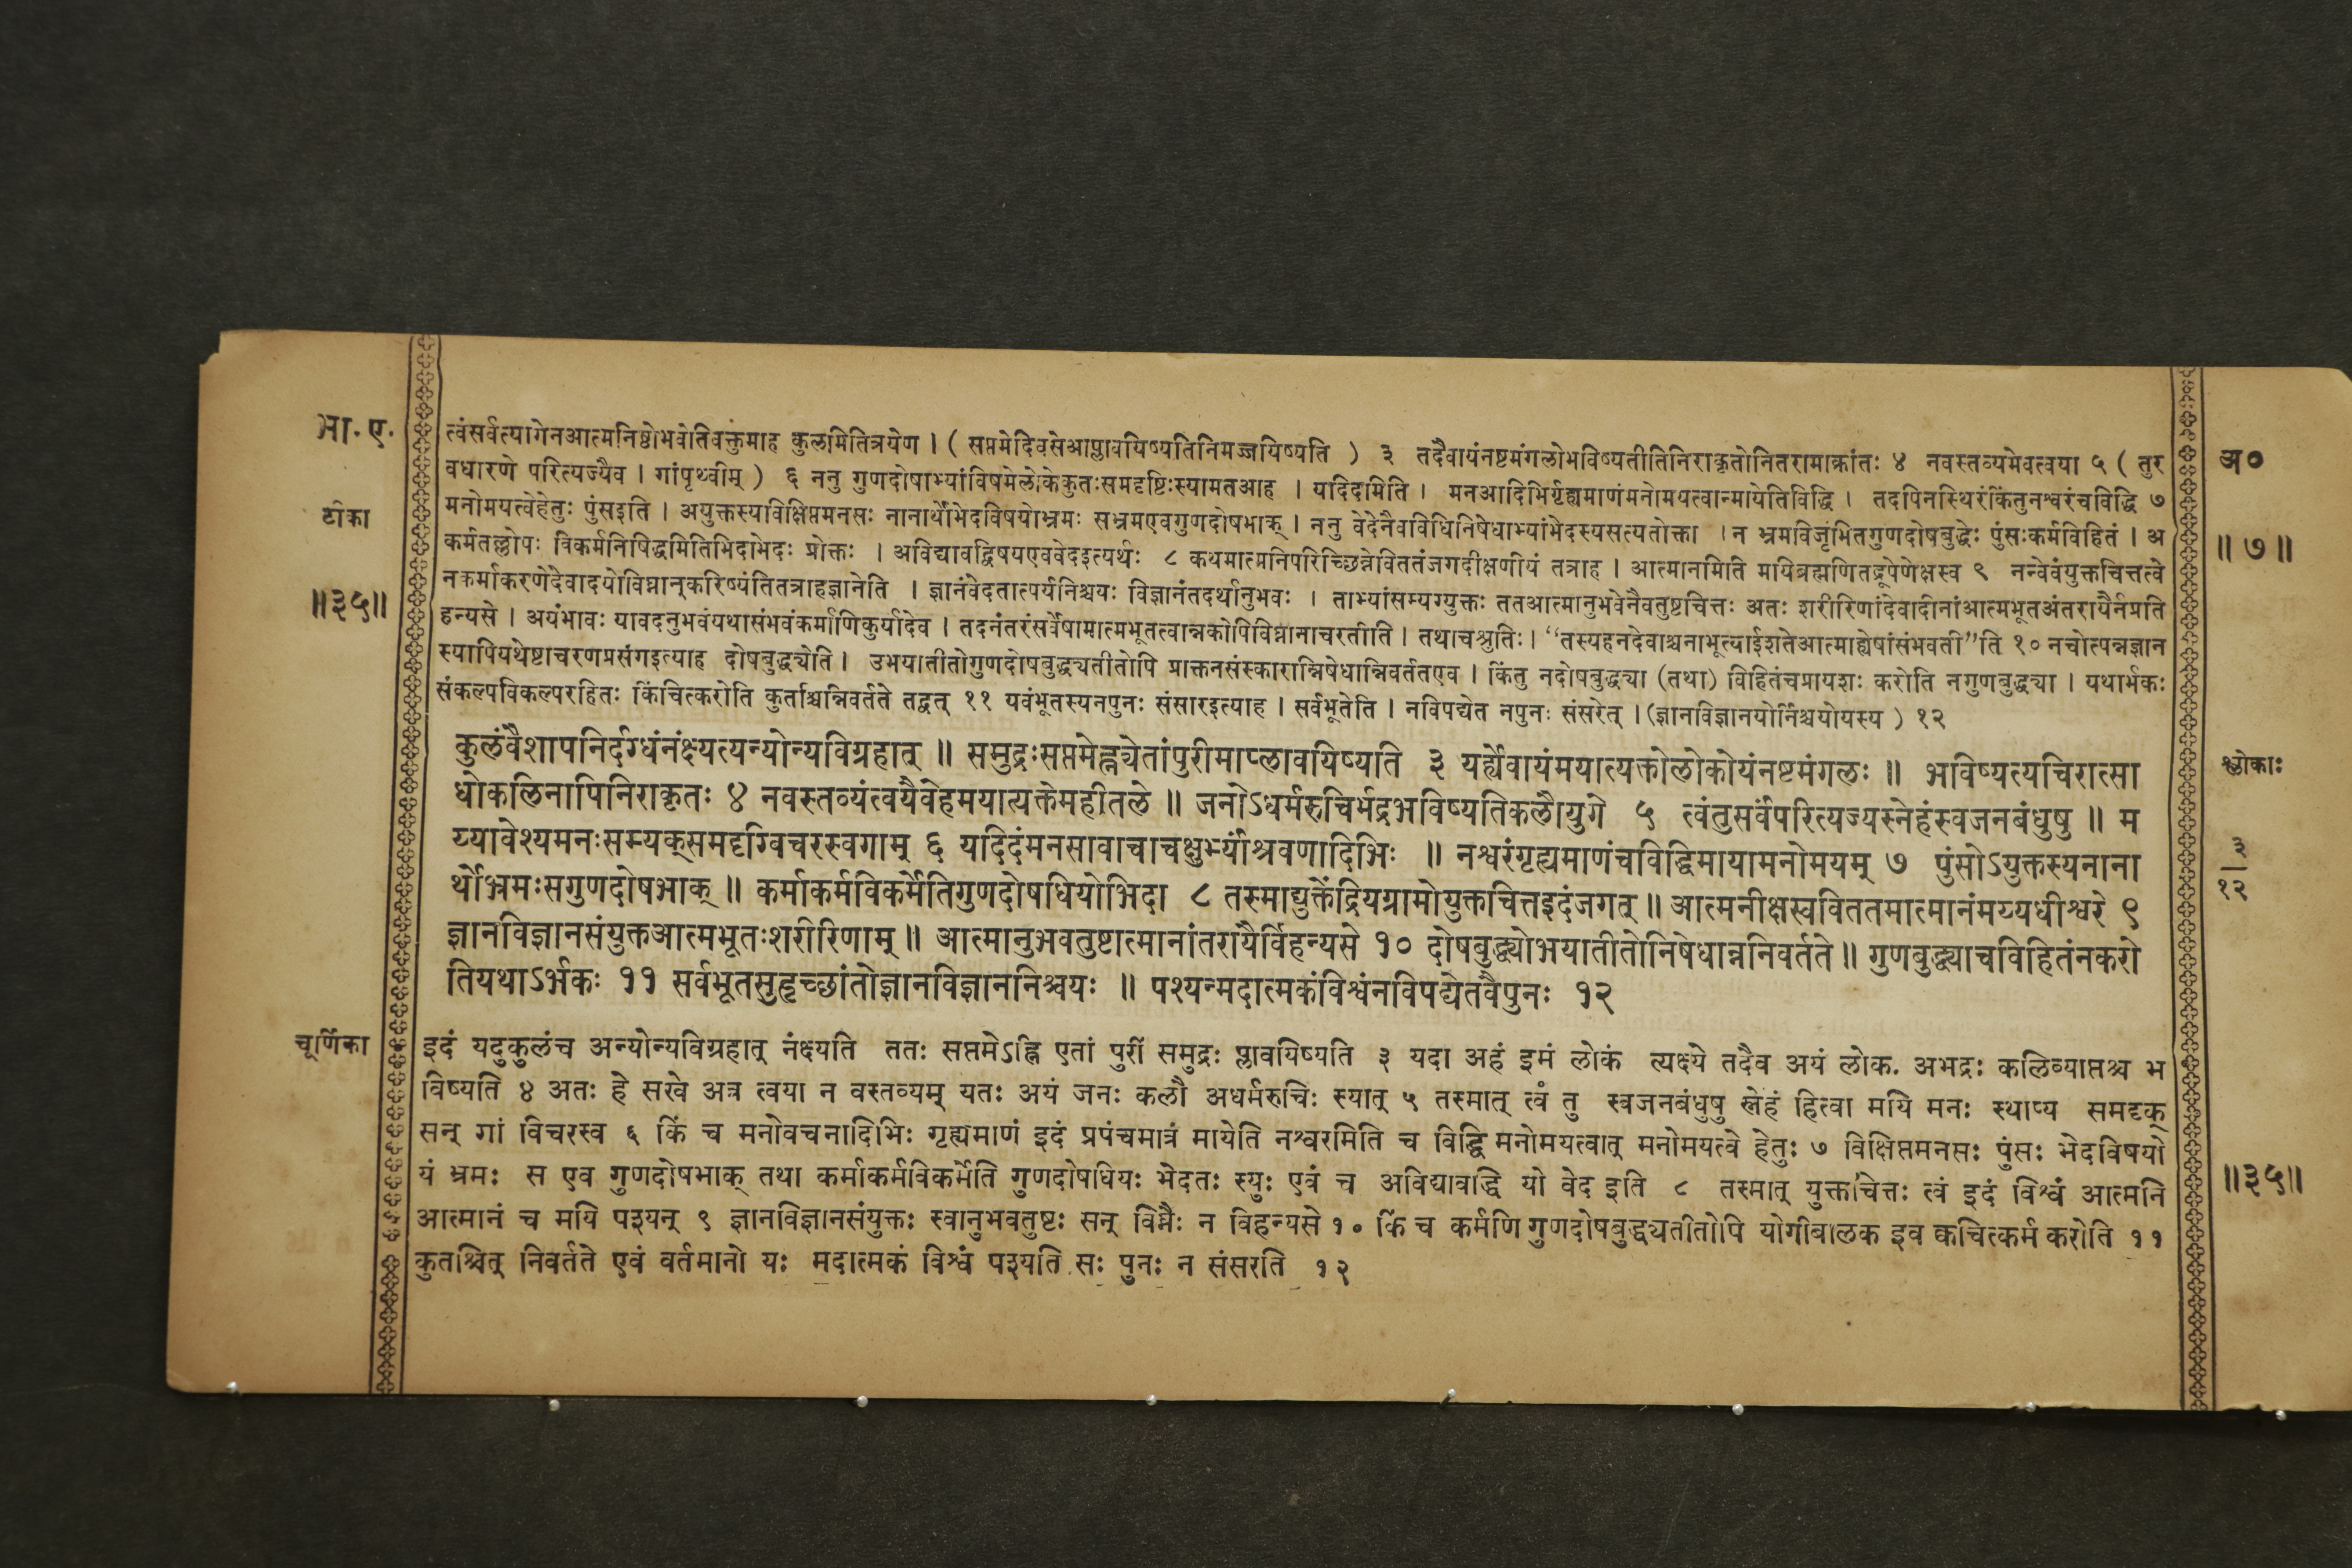 भा. ए.
त्वंसर्वत्यागेनआत्मनिष्ठोभवेतिवक्तुमाह कुलमितित्रयेण । ( सप्तमेदिवसेआप्लावयिष्यतिनिमज्जयिष्यति ) ३ तदैवायंनष्टमंगलोभविष्यतीतिनिराकृतोनितरामाक्रांतः ४ नवस्तव्यमेवत्वया ५ ( तुर
अ०
वधारणे परित्यज्यैव । गांपृथ्वीम् ) ६ ननु गुणदोषाभ्यांविषमेलोकेकुतःसमदृष्टिःस्यामतआह । यदिदमिति । मनआदिभिर्गृह्यमाणंमनोमयत्वान्मायेतिविद्धि । तदपिनस्थिरंकिंतुनश्वरंचविद्धि ७
टीका
मनोमयत्वेहेतुः पुंसइति । अयुक्तस्यविक्षिप्तमनसः नानार्थोभेदविषयोभ्रमः सभ्रमएवगुणदोषभाक् । ननु वेदेनैवविधिनिषेधाभ्यांभेदस्यसत्यतोक्ता । न भ्रमविजृंभितगुणदोषबुद्धेः पुंसःकर्मविहितं । अ
॥ ७ ॥
कर्मतल्लोपः विकर्मनिषिद्धमितिभिदाभेदः प्रोक्तः । अविद्यावद्विषयएववेदइत्यर्थः ८ कथमात्मनिपरिच्छिन्नेविततंजगदीक्षणीयं तत्राह । आत्मानमिति मयिब्रह्मणितद्रूपेणेक्षस्व ९ नन्वेवंयुक्तचित्तत्वे
॥३५॥
नकर्माकरणेदेवादयोविघ्नान्करिष्यंतितत्राहज्ञानेति । ज्ञानंवेदतात्पर्यनिश्चयः विज्ञानंतदर्थानुभवः । ताभ्यांसम्यग्युक्तः ततआत्मानुभवेनैवतुष्टचित्तः अतः शरीरिणांदेवादीनांआत्मभूतअंतरायैर्नप्रति
हन्यसे । अयंभावः यावदनुभवंयथासंभवंकर्माणिकुर्यादेव । तदनंतरंसर्वेषामात्मभूतत्वान्नकोपिविघ्नानाचरतीति । तथाचश्रुतिः । “तस्यहनदेवाश्चनाभूत्याईशतेआत्माह्येषांसंभवती”ति १० नचोत्पन्नज्ञान
स्यापियथेष्टाचरणप्रसंगइत्याह दोषबुद्ध्येति । उभयातीतोगुणदोषबुद्ध्यतीतोपि प्राक्तनसंस्कारान्निषेधान्निवर्ततएव । किंतु नदोषबुद्ध्या (तथा) विहितंचप्रायशः करोति नगुणबुद्ध्या । यथार्भकः
संकल्पविकल्परहितः किंचित्करोति कुतश्चिन्निवर्तते तद्वत् ११ यवंभूतस्यनपुनः संसारइत्याह । सर्वभूतेति । नविपद्येत नपुनः संसरेत् । (ज्ञानविज्ञानयोर्निश्चयोयस्य ) १२
कुलंवैशापनिर्दग्धंनंक्ष्यत्यन्योन्यविग्रहात् ॥ समुद्रःसप्तमेह्न्येतांपुरीमाप्लावयिष्यति ३ यर्ह्येवायंमयात्यक्तोलोकोयंनष्टमंगलः ॥ भविष्यत्यचिरात्सा
श्लोकाः
धोकलिनापिनिराकृतः ४ नवस्तव्यंत्वयैवेहमयात्यक्तेमहीतले ॥ जनोऽधर्मरुचिर्भद्रभविष्यतिकलौयुगे ५ त्वंतुसर्वंपरित्यज्यस्नेहंस्वजनबंधुषु ॥ म
य्यावेश्यमनःसम्यक्समदृग्विचरस्वगाम् ६ यदिदंमनसावाचाचक्षुर्भ्यांश्रवणादिभिः ॥ नश्वरंगृह्यमाणंचविद्धिमायामनोमयम् ७ पुंसोऽयुक्तस्यनाना
३
१२
र्थोभ्रमःसगुणदोषभाक् ॥ कर्माकर्मविकर्मेतिगुणदोषधियोभिदा ८ तस्माद्युक्तेंद्रियग्रामोयुक्तचित्तइदंजगत् ॥ आत्मनीक्षस्वविततमात्मानंमय्यधीश्वरे ९
ज्ञानविज्ञानसंयुक्तआत्मभूतःशरीरिणाम् ॥ आत्मानुभवतुष्टात्मानांतरायैर्विहन्यसे १० दोषबुद्ध्योभयातीतोनिषेधान्ननिवर्तते ॥ गुणबुद्ध्याचविहितंनकरो
तियथाऽर्भकः ११ सर्वभूतसुहृच्छांतोज्ञानविज्ञाननिश्चयः ॥ पश्यन्मदात्मकंविश्वंनविपद्येतवैपुनः १२
चूर्णिका
इदं यदुकुलंच अन्योन्यविग्रहात् नंक्ष्यति ततः सप्तमेऽह्नि एतां पुरीं समुद्रः प्लावयिष्यति ३ यदा अहं इमं लोकं त्यक्ष्ये तदैव अयं लोक. अभद्रः कलिव्याप्तश्च भ
विष्यति ४ अतः हे सखे अत्र त्वया न वस्तव्यम् यतः अयं जनः कलौ अधर्मरुचिः स्यात् ५ तस्मात् त्वं तु स्वजनबंधुषु स्नेहं हित्वा मयि मनः स्थाप्य समदृक्
सन् गां विचरस्व ६ किं च मनोवचनादिभिः गृह्यमाणं इदं प्रपंचमात्रं मायेति नश्वरमिति च विद्धि मनोमयत्वात् मनोमयत्वे हेतुः ७ विक्षिप्तमनसः पुंसः भेदविषयो
यं भ्रमः स एव गुणदोषभाक् तथा कर्माकर्मविकर्मेति गुणदोषधियः भेदतः स्युः एवं च अविद्यावद्धि यो वेद इति ८ तस्मात् युक्तचित्तः त्वं इदं विश्वं आत्मनि
॥३५॥
आत्मानं च मयि पश्यन् ९ ज्ञानविज्ञानसंयुक्तः स्वानुभवतुष्टः सन् विघ्नैः न विहन्यसे १० किं च कर्मणि गुणदोषबुद्ध्यतीतोपि योगीबालक इव क्वचित्कर्म करोति ११
कुतश्चित् निवर्तते एवं वर्तमानो यः मदात्मकं विश्वं पश्यति सः पुनः न संसरति १२